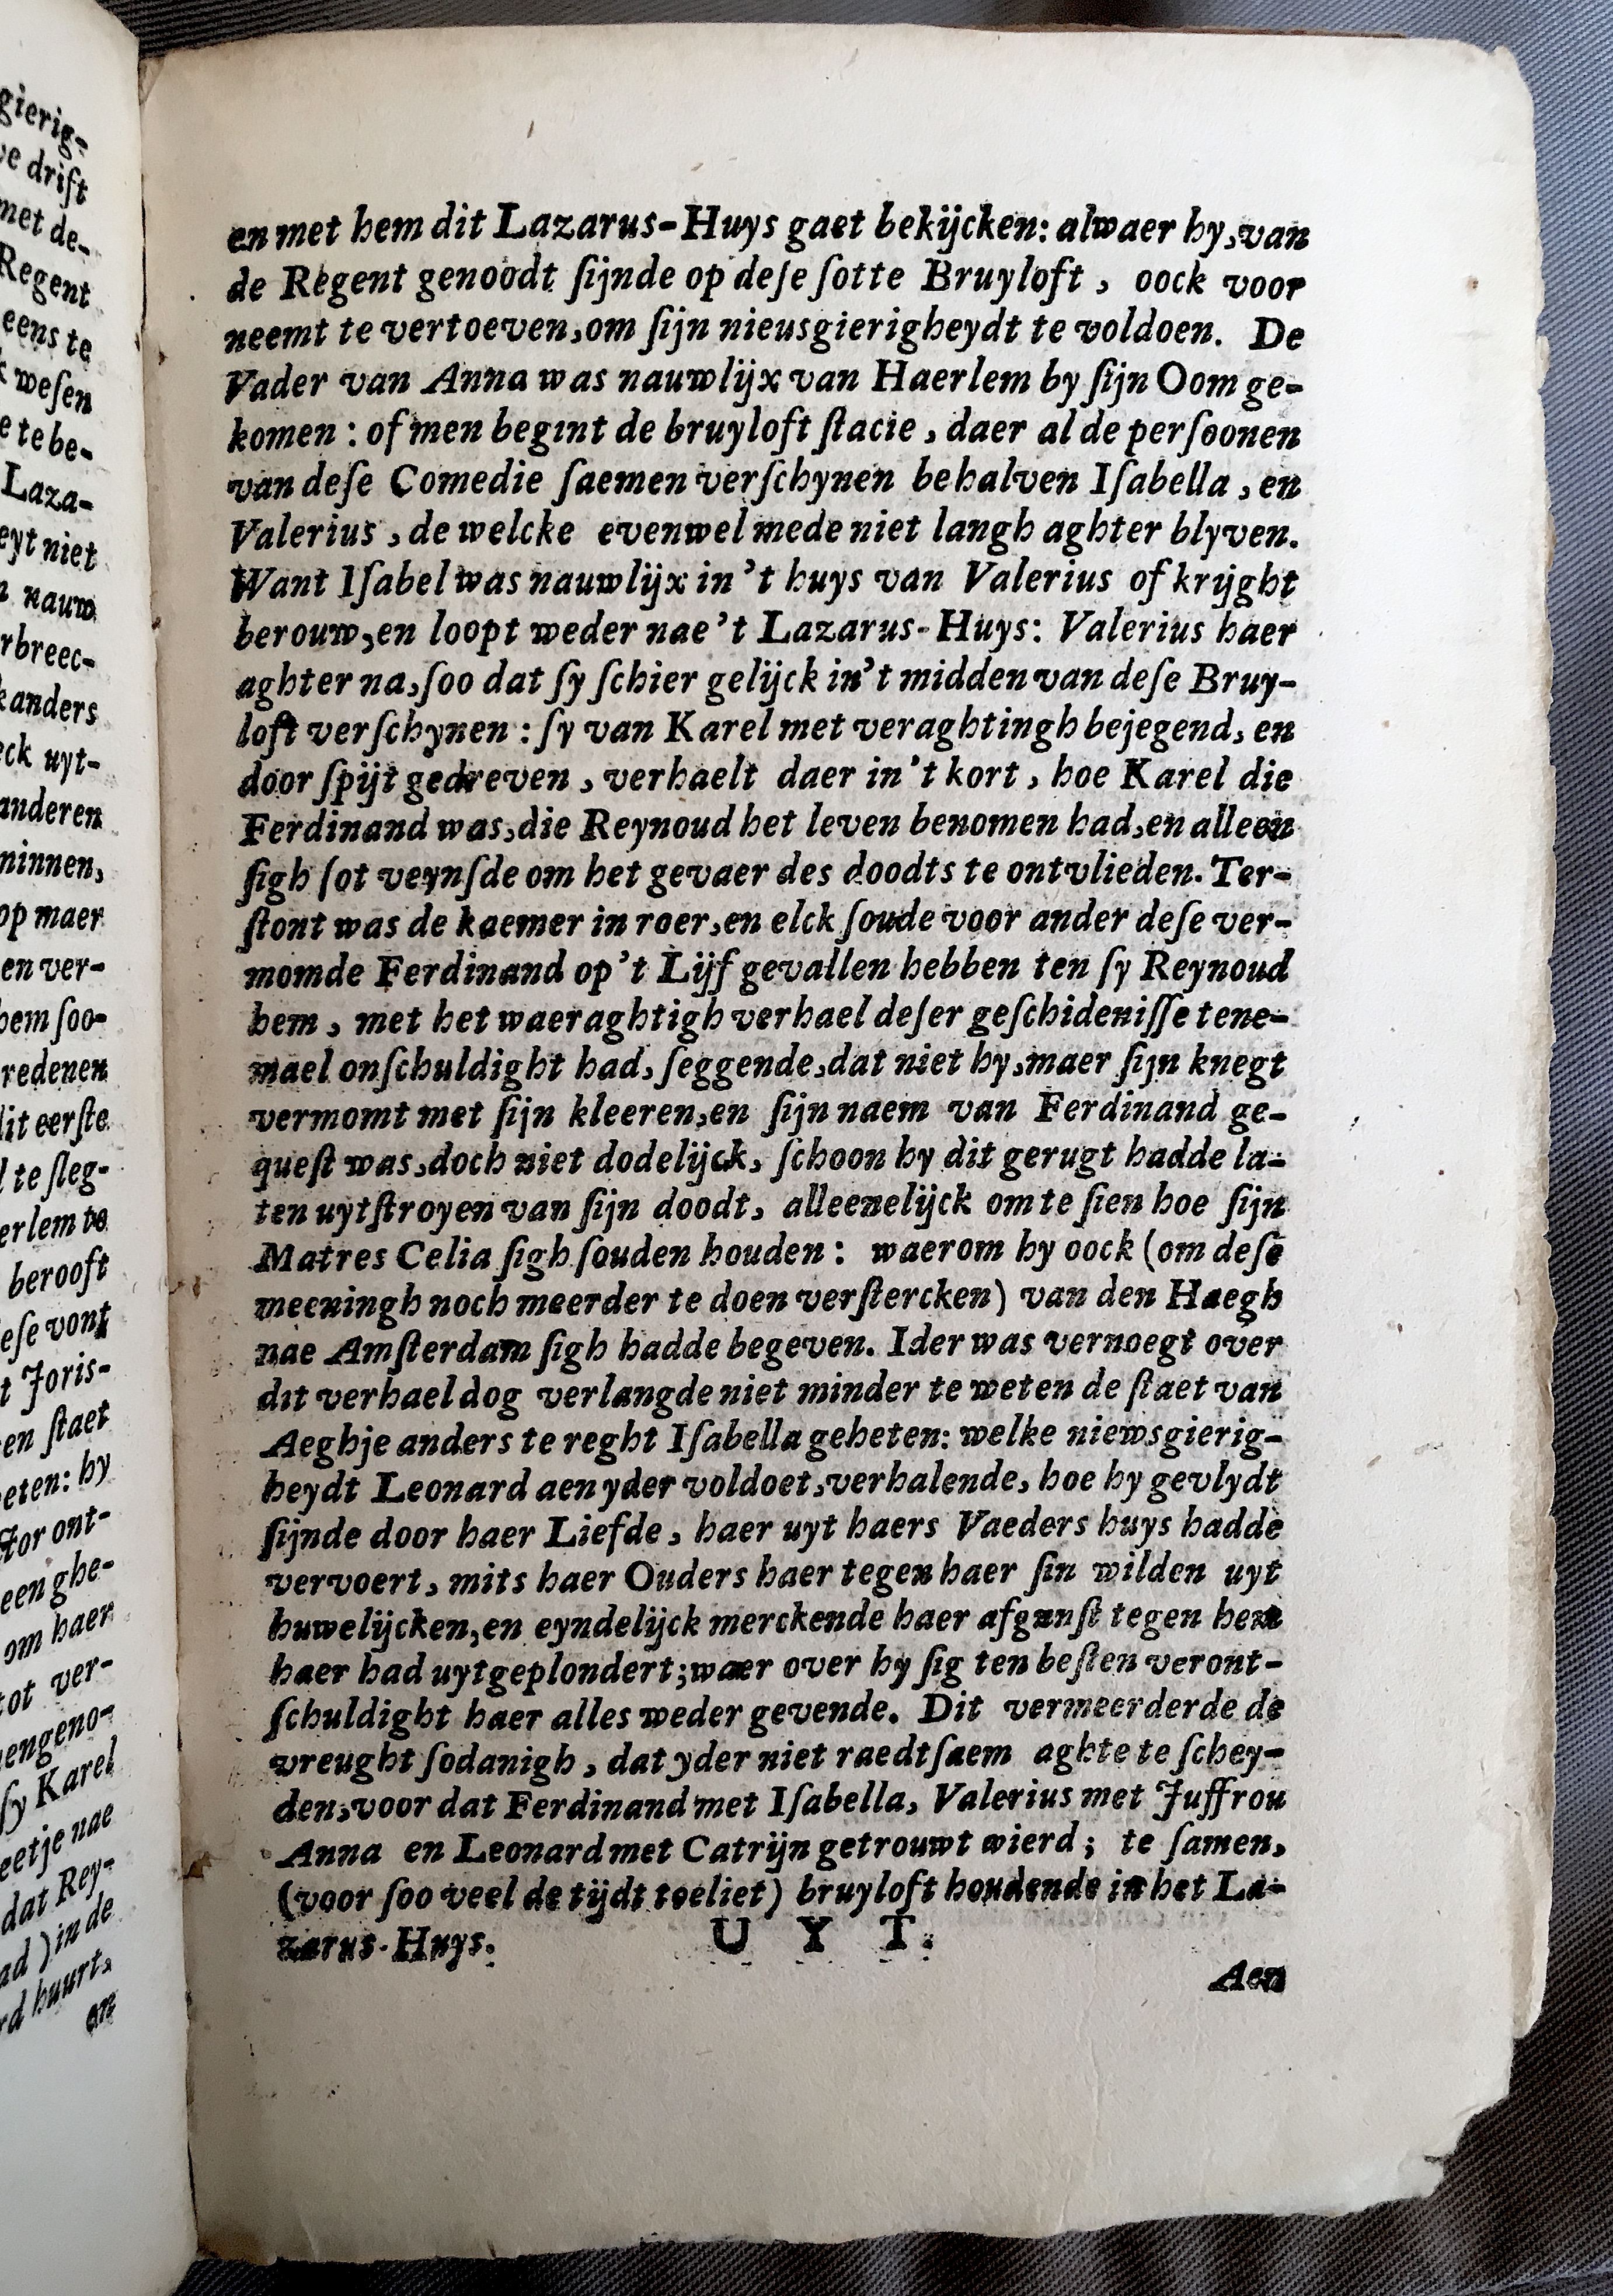 gierig-
ve drift
met de-
Regent
eens te
wesen
e te be-
Laza-
eyt niet
nauw
rbreec-
anders
ck uyt-
anderen
ninnen,
op maer
en ver-
hem soo-
redenen
dit eerste
l te sleg-
erlem te
berooft
ese vont
t Joris-
en staet
eten: hy
ctor ont-
een ghe-
om haer
tot ver-
engeno-
sy Karel
eetje nae
dat Rey-
ad ) in de
rd huurt,
en
en met hem dit Lazarus-Huys gaet bekijcken: alwaer hy, van
de Regent genoodt ſijnde op deſe ſotte Bruyloft , oock voor
neemt te vertoeven, om ſijn nieusgierigheydt te voldoen. De
Vader van Anna was nauwlijx van Haerlem by ſijn Oom ge-
komen : of men begint de bruyloft ſtacie , daer al de perſoonen
van deſe Comedie ſaemen verſchynen behalven Iſabella , en
Valerius , de welcke evenwel mede niet langh aghter blyven.
Want Iſabel was nauwlijx in 't huys van Valerius of krijght
berouw, en loopt weder nae 't Lazarus-Huys: Valerius haer
aghter na, ſoo dat ſy ſchier gelijck in't midden van deſe Bruy-
loft verſchynen : ſy van Karel met veraghtingh bejegend, en
door ſpijt gedreven , verhaelt daer in't kort , hoe Karel die
Ferdinand was, die Reynoud het leven benomen had, en alleen
ſigh ſot veynſde om het gevaer des doodts te ontvlieden. Ter-
ſtont was de kaemer in roer, en elck ſoude voor ander deſe ver-
momde Ferdinand op't Lijf gevallen hebben ten ſy Reynoud
hem , met het waeraghtigh verhael deſer geſchideniſſe tene-
mael onſchuldight had, ſeggende, dat niet hy, maer ſijn knegt
vermomt met ſijn kleeren, en ſijn naem van Ferdinand ge-
queſt was, doch niet dodelijck, ſchoon hy dit gerugt hadde la-
ten uytſtroyen van ſijn doodt, alleenelijck om te ſien hoe ſijn
Matres Celia ſigh ſouden houden : waerom hy oock (om deſe
meeningh noch meerder te doen verſtercken) van den Haegh
nae Amſterdam ſigh hadde begeven. Ider was vernoegt over
dit verhael dog verlangde niet minder te weten de ſtaet van
Aeghje anders te reght Iſabella geheten: welke niewsgierig-
heydt Leonard aen yder voldoet, verhalende, hoe hy gevlydt
ſijnde door haer Liefde , haer uyt haers Vaeders huys hadde
vervoert, mits haer Ouders haer tegen haer ſin wilden uyt
huwelijcken, en eyndelijck merckende haer afgunſt tegen hem
haer had uytgeplondert; waer over hy ſig ten beſten veront-
ſchuldight haer alles weder gevende. Dit vermeerderde de
vreught ſodanigh , dat yder niet raedtſaem aghte te ſchey-
den, voor dat Ferdinand met Iſabella, Valerius met Juffrou
Anna en Leonard met Catrijn getrouwt wierd ; te ſamen,
(voor ſoo veel de tijdt toeliet) bruyloft houdende in het La-
zarus-Huys. U Y T.
Aen